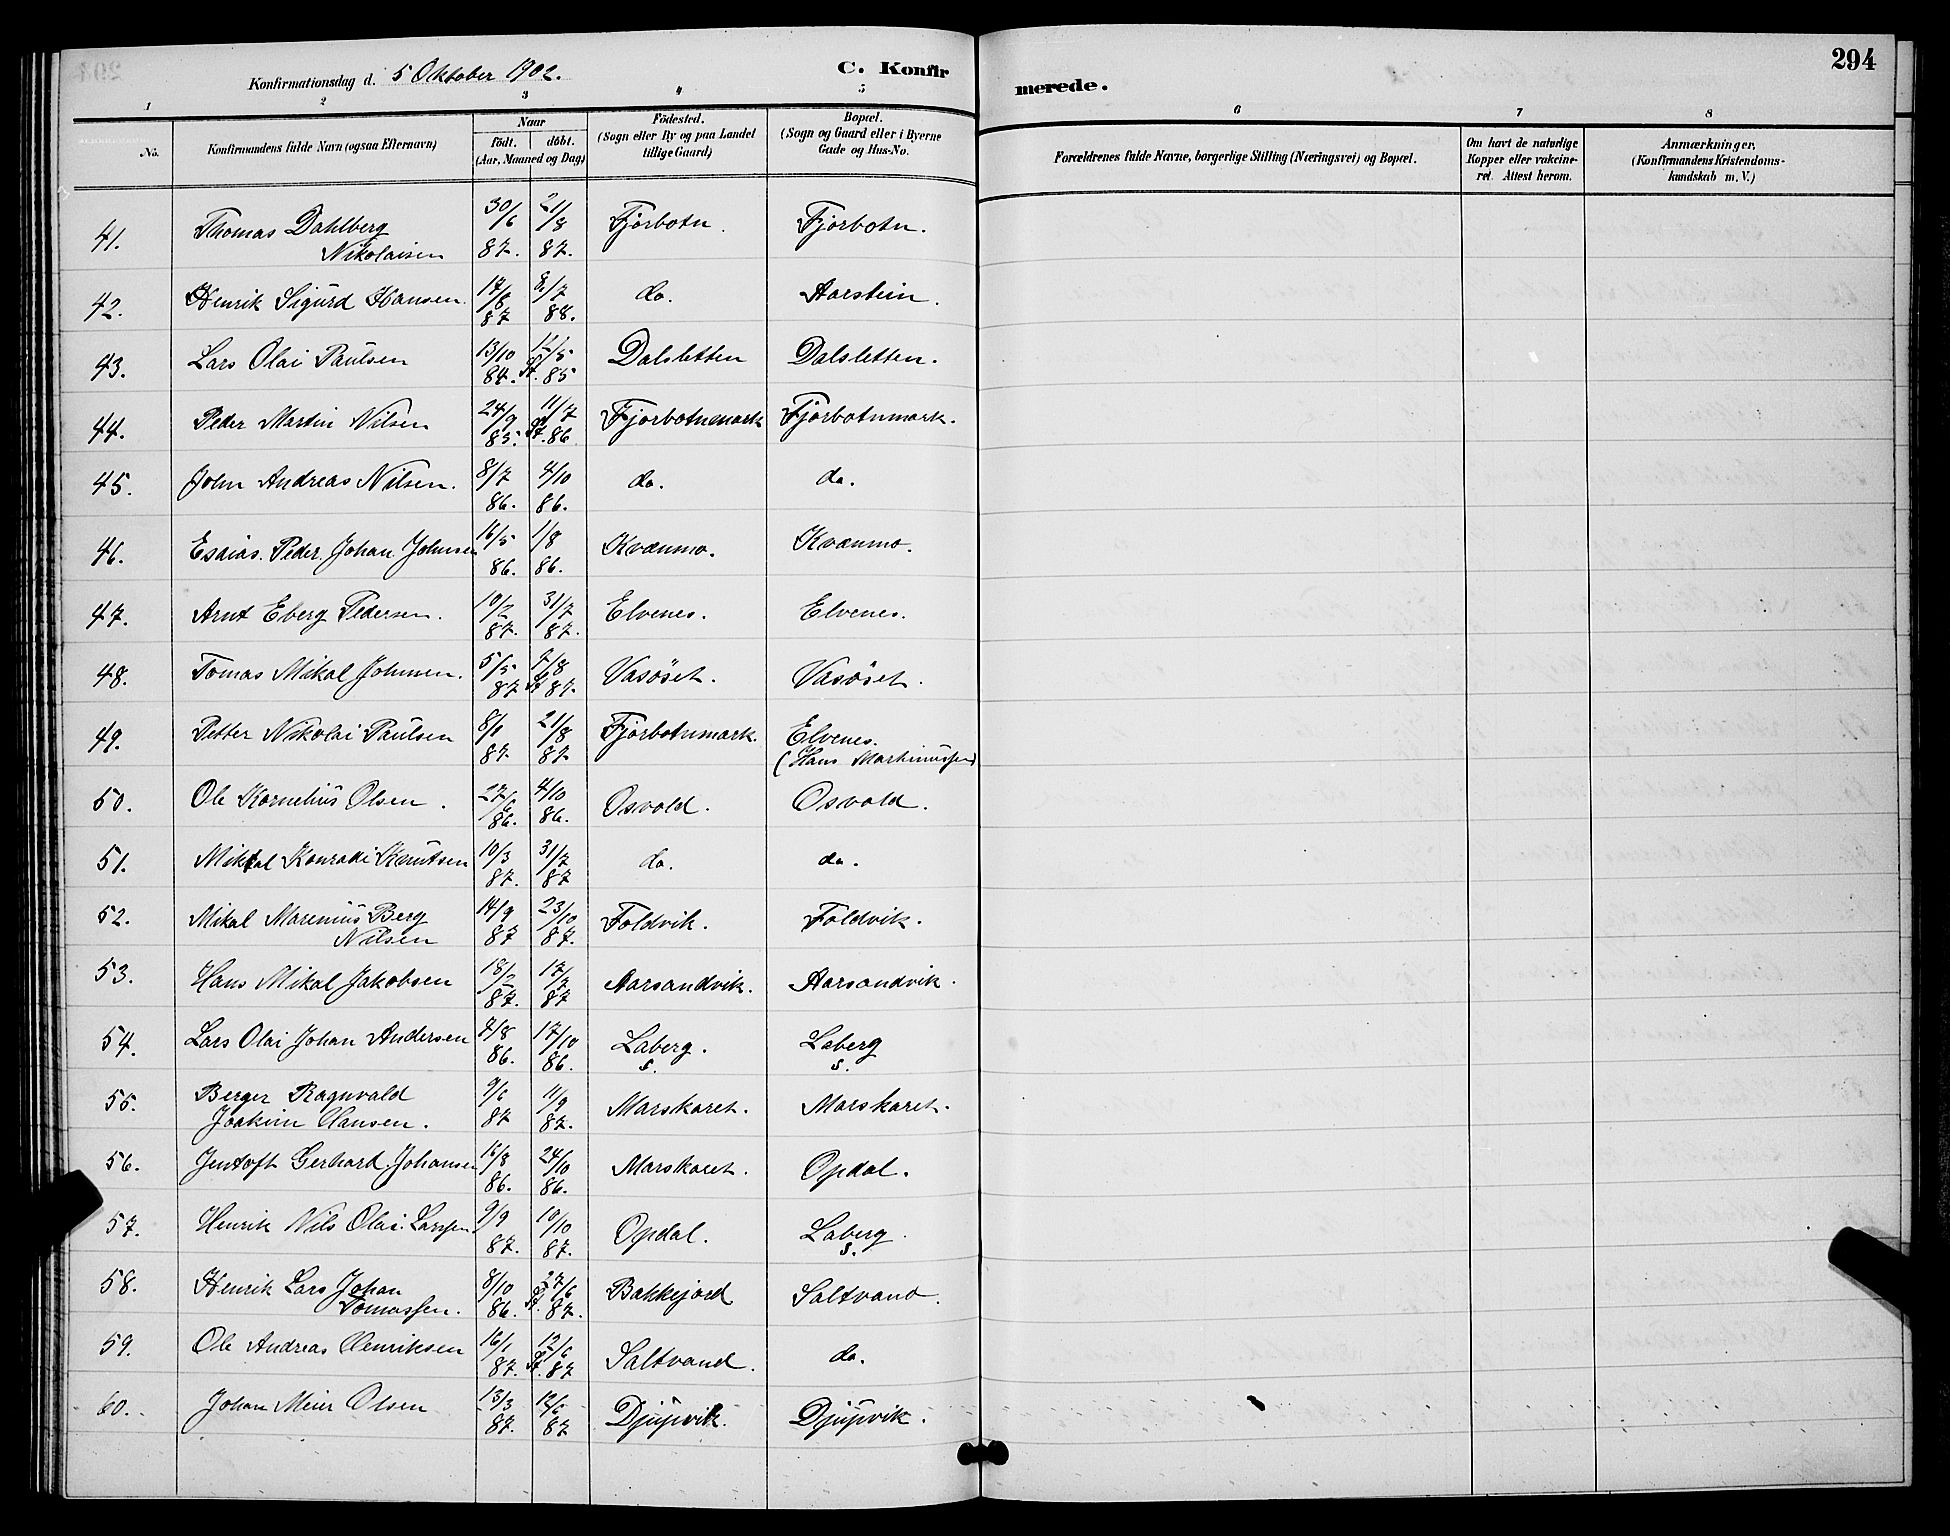 294
Konfirmationsdag d. 5 Oktober 1902.
C. Konfir
merede.
1 2 3 4 5 6 7 8
No.
Konfirmandens fulde Navn (ogsaa Efternavn)
Naar
födt. döbt.
(Aar, Maaned og Dag)
Födested.
(Sogn eller By og paa Landet
tillige Gaard)
Bopæl.
(Sogn og Gaard eller i Byerne
Gade og Hus-No.
Forældrenes fulde Navne, borgerlige Stilling (Næringsvei) og Bopæl.
Om havt de naturlige
Kopper eller vakcine-
ret. Attest herom.
Anmærkninger,
(Konfirmandens Kristendoms-
kundskab m. V.)
41. Thomas Dahlberg 30/6 21/8 Fjorbotn. Fjorbotn.
Nikolaisen 87. 87.
42. Henrik Sigurd Hansen. 17/8 8/7 do. Aarstein.
87 88.
43. Lars Olai Paulsen 13/10 12/5 Dalsletten Dalsletten.
84. St. 85
44. Peder Martin Nilsen 24/9 11/7 Fjorbotnmark Fjorbotnmark.
85. St. 86
45. John Andreas Nilsen. 8/7 4/10 do. do.
86. 86.
46. Esaias. Peder Johan Johnsen 16/5 1/8 Kvænmo. Kvænmo.
86. 86.
47. Arnt Eberg Pedersen. 10/2 31/7 Elvenes. Elvenes.
87. 87.
48. Tomas Mikal Johnsen. 5/5 7/8 Vasöset. Vasöset.
87 St 87.
49. Petter Nikolai Paulsen 8/1 21/8 Fjorbotnmark. Elvenes.
87 87 (Hans Martinussen)
50. Ole Kornelius Olsen. 27/6 4/10 Osvold. Osvold.
86. 86.
51. Mikkal Konradi Knutsen 10/3 31/7 do. do.
87. 87
52. Mikal Marenius Berg 14/9 23/10 Foldvik. Foldvik.
Nilsen 87 87.
53. Hans Mikal Jakobsen 18/2 17/7 Aarsandvik. Aarsandvik.
87. 87
54. Lars Olai Johan Andersen 7/8 17/10 Laberg. Laberg
86. 86. s. s.
55. Berger Ragnvald 9/6 11/9 Marskaret. Marskaret.
Joakim Hansen. 87 87.
56. Jentoft Gerhard Johansen 16/8 24/10 Marskaret. Opdal.
86. 86.
57. Henrik Nils Olai Larssen. 9/9 10/10 Opdal. Laberg.
87. 87. s.
58. Henrik Lars Johan 8/10 27/6 Bakkejord Saltvand.
Tomassen. 86. St. 87.
59. Ole Andreas Henriksen 16/1 12/6 Saltvand. do.
87. St. 87
60. Johan Meier Olsen 13/3 12/6 Djupvik. Djupvik.
87. 87